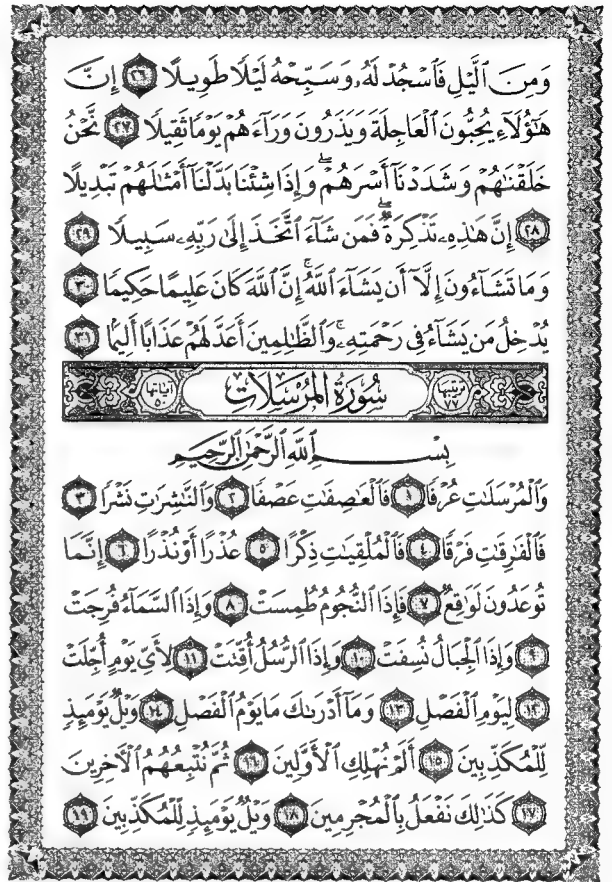 وَمِنَ ٱلَّيۡلِ فَٱسۡجُدۡ لَهُۥ وَسَبِّحۡهُ لَيۡلٗا طَوِيلًا ٢٦ إِنَّ
هَٰٓؤُلَآءِ يُحِبُّونَ ٱلۡعَاجِلَةَ وَيَذَرُونَ وَرَآءَهُمۡ يَوۡمٗا ثَقِيلٗا ٢٧ نَّحۡنُ
خَلَقۡنَٰهُمۡ وَشَدَدۡنَآ أَسۡرَهُمۡۖ وَإِذَا شِئۡنَا بَدَّلۡنَآ أَمۡثَٰلَهُمۡ تَبۡدِيلًا
٢٨ إِنَّ هَٰذِهِۦ تَذۡكِرَةٞۖ فَمَن شَآءَ ٱتَّخَذَ إِلَىٰ رَبِّهِۦ سَبِيلٗا ٢٩
وَمَا تَشَآءُونَ إِلَّآ أَن يَشَآءَ ٱللَّهُۚ إِنَّ ٱللَّهَ كَانَ عَلِيمًا حَكِيمٗا ٣٠
يُدۡخِلُ مَن يَشَآءُ فِي رَحۡمَتِهِۦۚ وَٱلظَّٰلِمِينَ أَعَدَّ لَهُمۡ عَذَابًا أَلِيمَۢا ٣١
ترتيبها ٧٧ سُورَةُ المُرۡسَلَات آياتها ٥٠
بِسۡمِ ٱللَّهِ ٱلرَّحۡمَٰنِ ٱلرَّحِيمِ
وَٱلۡمُرۡسَلَٰتِ عُرۡفٗا ١ فَٱلۡعَٰصِفَٰتِ عَصۡفٗا ٢ وَٱلنَّٰشِرَٰتِ نَشۡرٗا ٣
فَٱلۡفَٰرِقَٰتِ فَرۡقٗا ٤ فَٱلۡمُلۡقِيَٰتِ ذِكۡرًا ٥ عُذۡرًا أَوۡ نُذۡرًا ٦ إِنَّمَا
تُوعَدُونَ لَوَٰقِعٞ ٧ فَإِذَا ٱلنُّجُومُ طُمِسَتۡ ٨ وَإِذَا ٱلسَّمَآءُ فُرِجَتۡ
٩ وَإِذَا ٱلۡجِبَالُ نُسِفَتۡ ١٠ وَإِذَا ٱلرُّسُلُ أُقِّتَتۡ ١١ لِأَيِّ يَوۡمٍ أُجِّلَتۡ
١٢ لِيَوۡمِ ٱلۡفَصۡلِ ١٣ وَمَآ أَدۡرَىٰكَ مَا يَوۡمُ ٱلۡفَصۡلِ ١٤ وَيۡلٞ يَوۡمَئِذٖ
لِّلۡمُكَذِّبِينَ ١٥ أَلَمۡ نُهۡلِكِ ٱلۡأَوَّلِينَ ١٦ ثُمَّ نُتۡبِعُهُمُ ٱلۡأٓخِرِينَ
١٧ كَذَٰلِكَ نَفۡعَلُ بِٱلۡمُجۡرِمِينَ ١٨ وَيۡلٞ يَوۡمَئِذٖ لِّلۡمُكَذِّبِينَ ١٩